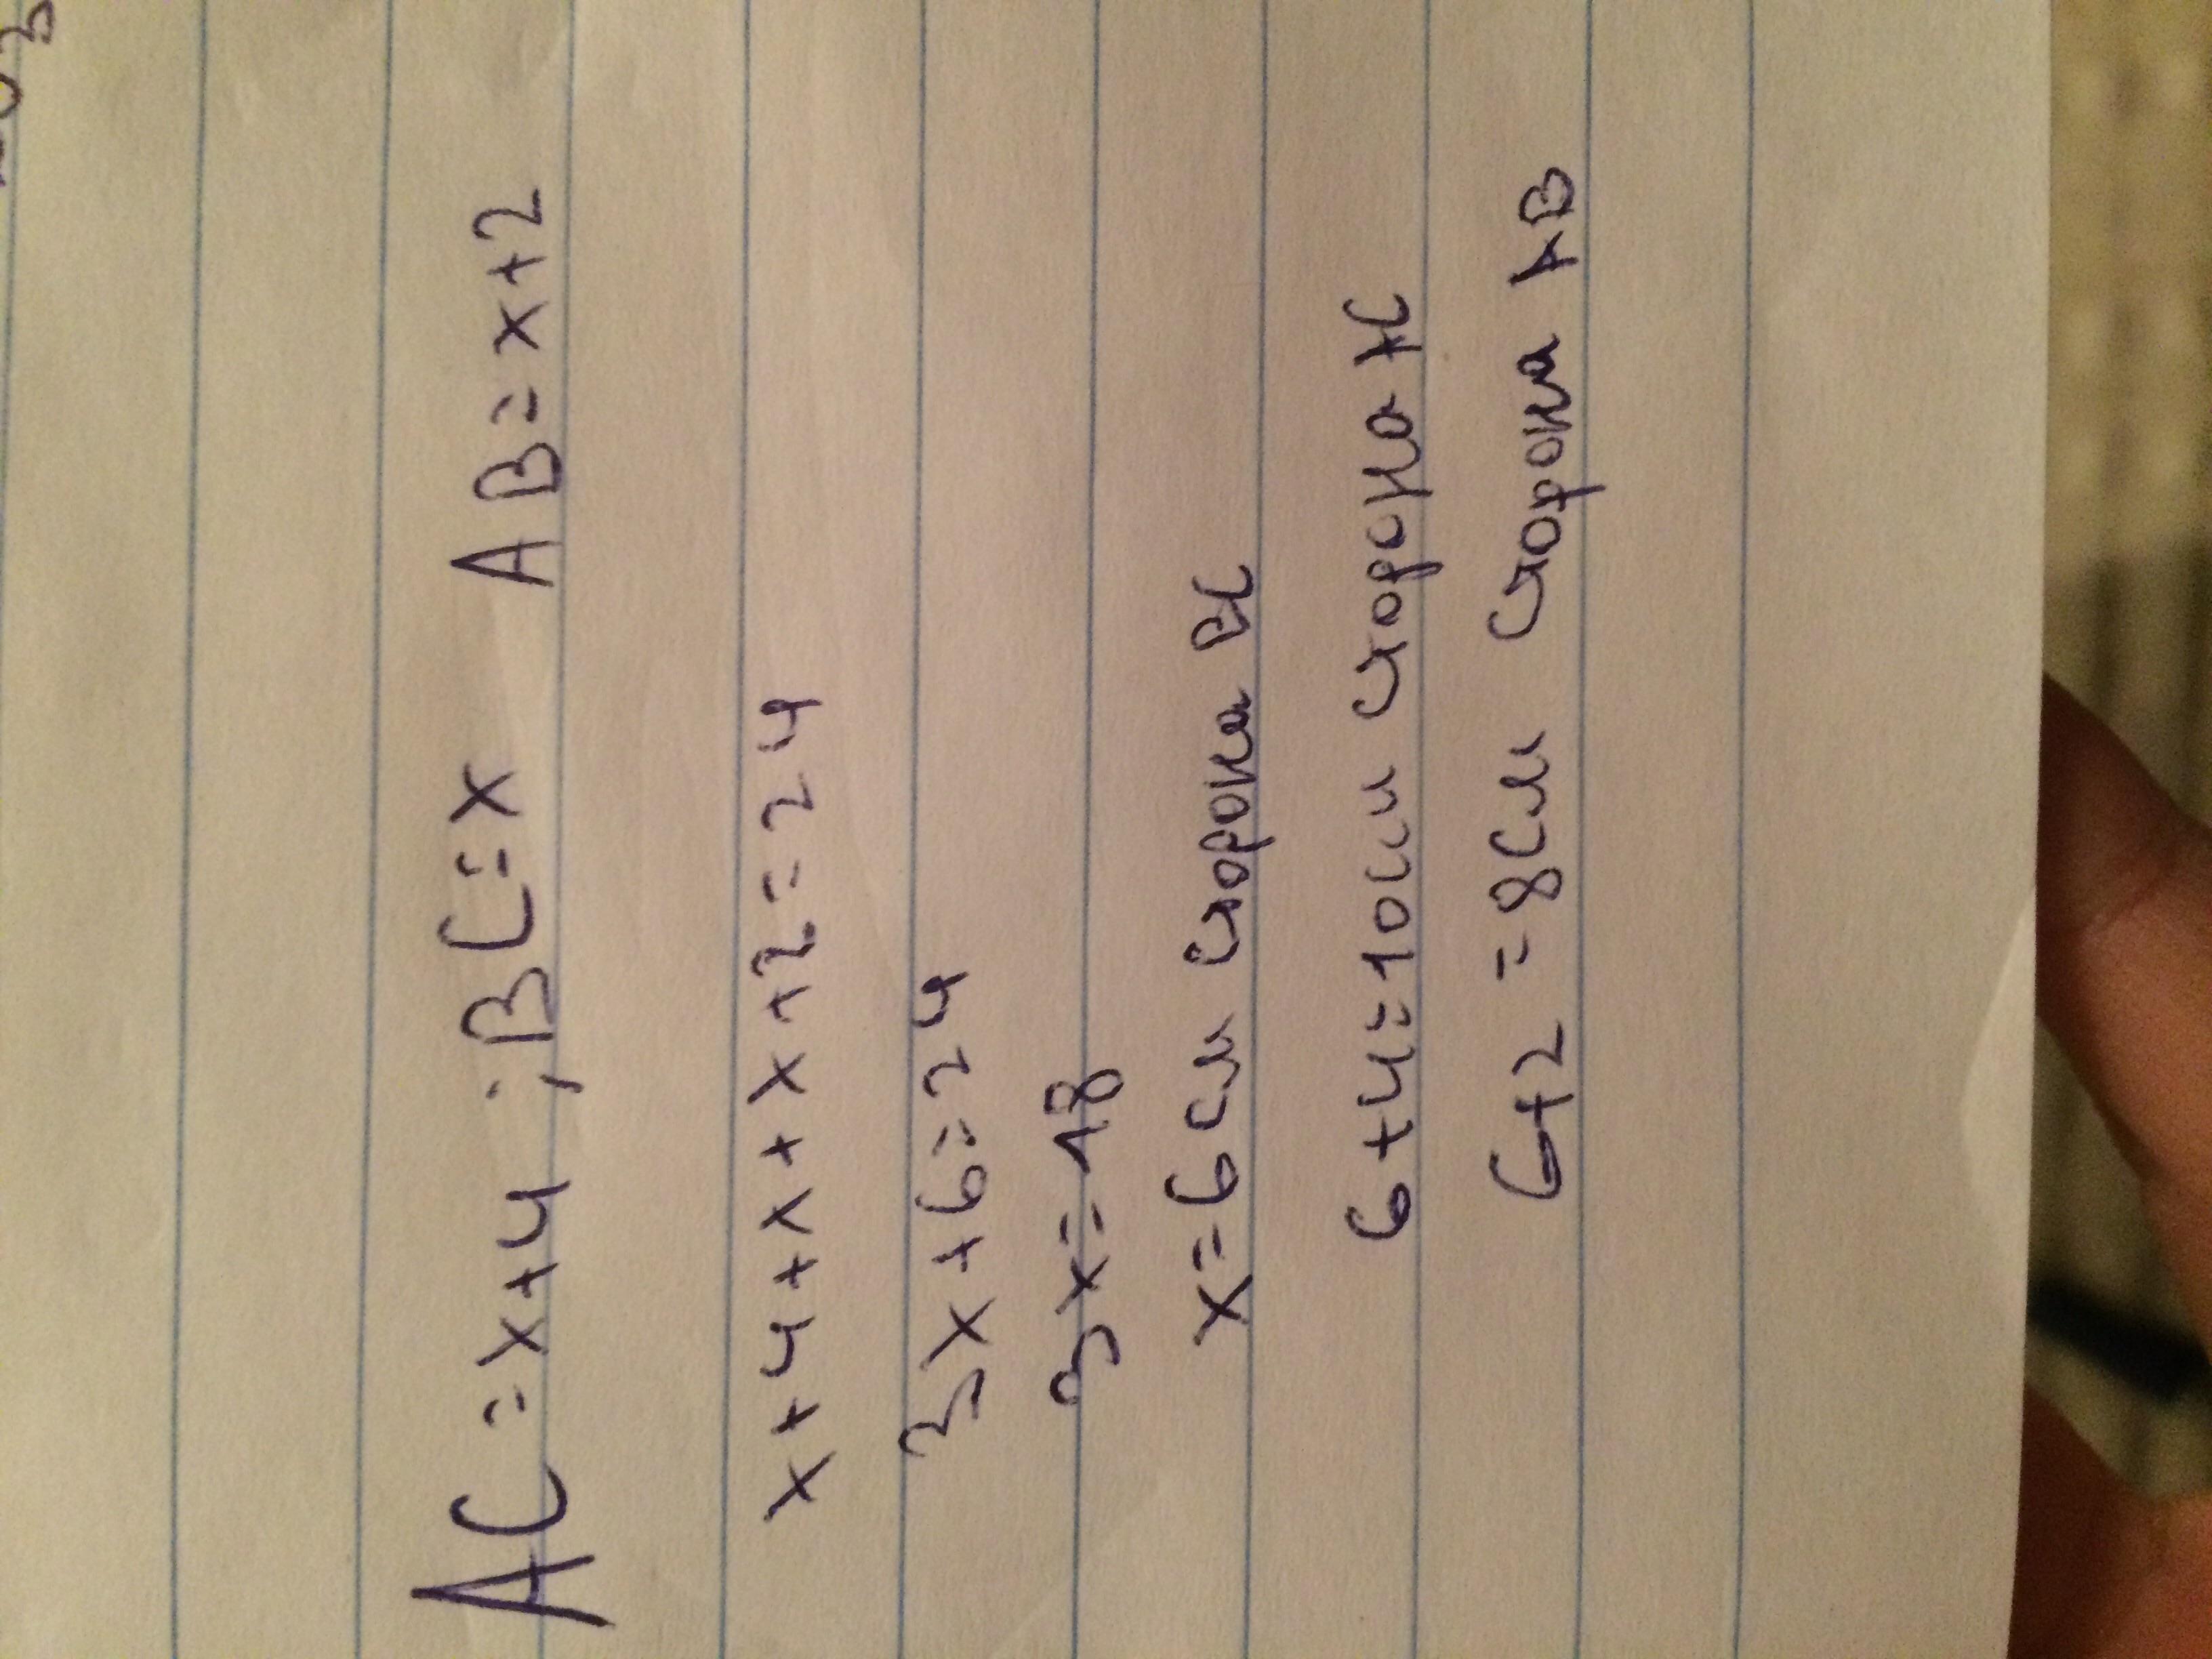 AC=x+4; BC=x AB=x+2
x+4+x+x+2=24
3x+6=24
3x=18
x=6см сторона BC
6+4=10см сторона AC
6+2=8см сторона AB